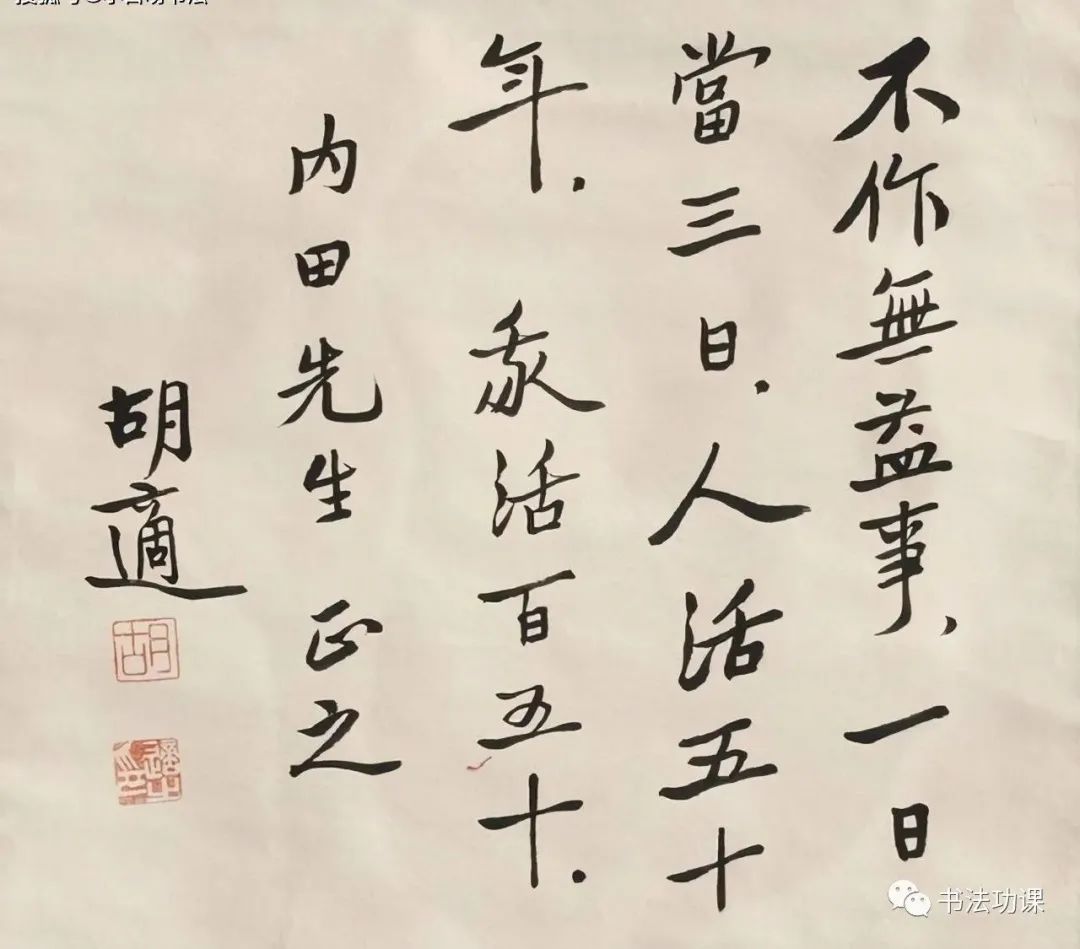 不作無益事、一日
當三日.人活五十
年.我活百五十.
内田先生正之
胡適
胡
书法功课